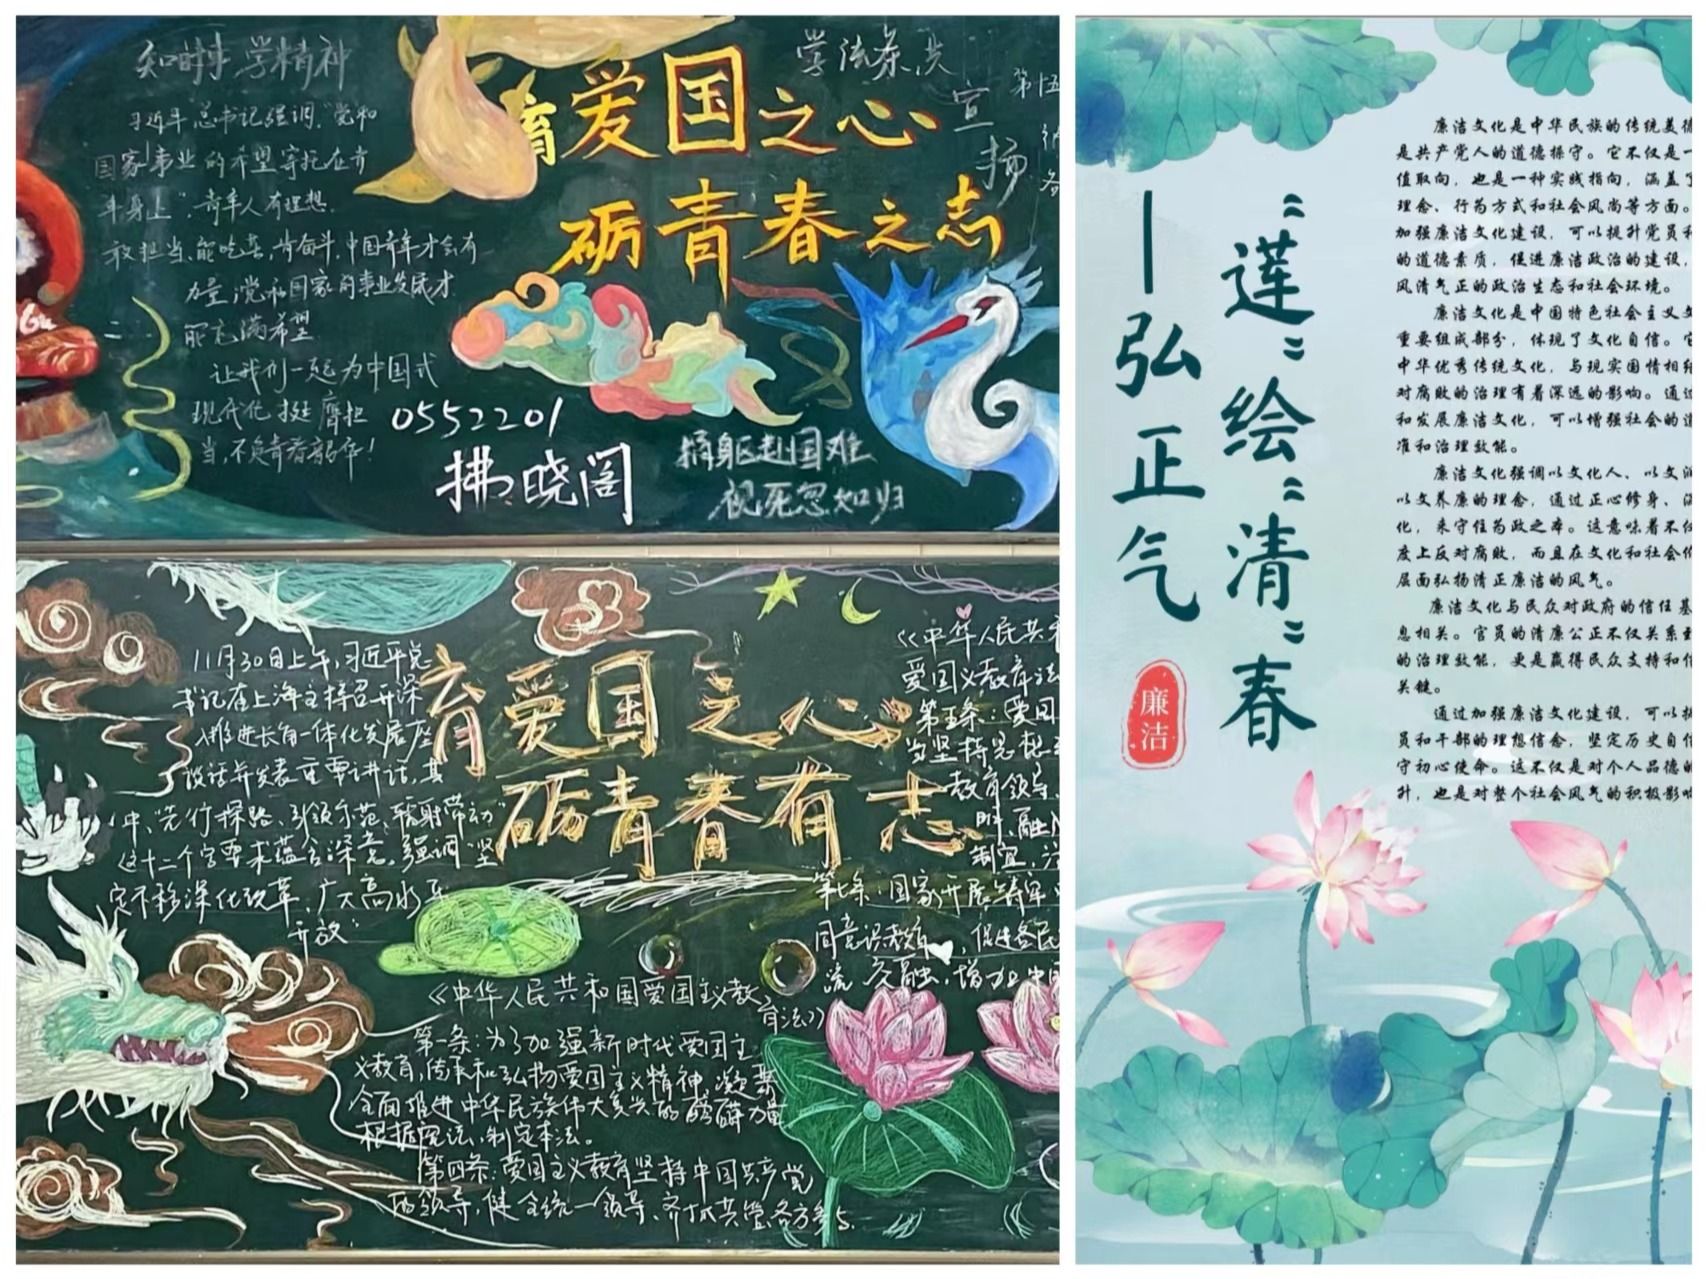 知时事 学精神
习近平总书记强调,"党和
国家事业的希望寄托在青
年身上",青年人有理想,
敢担当、能吃苦,肯奋斗,中国青年才会有
力量,党和国家的事业发展才
能充满希望
让我们一起为中国式
现代化挺膺担
当,不负青春韶华!
育爱国之心
砺青春之志
学法条 共
宣扬
第五
0552201
拂晓阁
捐躯赴国难
视死忽如归
11月30日上午,习近平总
书记在上海主持召开深
入推进长三角一体化发展座
谈话并发表重要讲话,其
中、先行探路、引领示范、辐射带动"
这十二个字要求蕴含深意。强调"坚
定不移深化改革、扩大高水平
开放"
育爱国之心
砺青春有志
《中华人民共和
爱国主义教育法
第五条:爱国
当坚持思想
教育领导
时、融
制宜,注
第七条:国家开展铸牢
同意识教育,促进各民
流 交融,增加中
《中华人民共和国爱国主义教
育法》
第一条:为了加强新时代爱国主
义教育,传承和弘扬爱国主义精神,凝聚
全面推进中华民族伟大复兴的磅礴力量
根据宪法,制定本法。
第四条:爱国主义教育坚持中国共产党
的领导,健全统一领导、齐抓共管、各方参与、
"莲"绘"清"春
——弘正气
廉洁
廉洁文化是中华民族的传统美德
是共产党人的道德操守。它不仅是一
值取向,也是一种实践指向,涵盖了
理念、行为方式和社会风尚等方面。
加强廉洁文化建设,可以提升党员和
的道德素质,促进廉洁政治的建设,
风清气正的政治生态和社会环境。
廉洁文化是中国特色社会主义文
重要组成部分,体现了文化自信。它
中华优秀传统文化,与现实国情相结
对腐败的治理有着深远的影响。通过
和发展廉洁文化,可以增强社会的道
准和治理效能。
廉洁文化强调以文化人、以文润
以文养廉的理念,通过正心修身、涵
化,来守住为政之本。这意味着不仅
度上反对腐败,而且在文化和社会价
层面弘扬清正廉洁的风气。
廉洁文化与民众对政府的信任基
息相关。官员的清廉公正不仅关系到
的治理效能,更是赢得民众支持和信
关键。
通过加强廉洁文化建设,可以提
员和干部的理想信念,坚定历史自信
守初心使命。这不仅是对个人品德的
升,也是对整个社会风气的积极影响